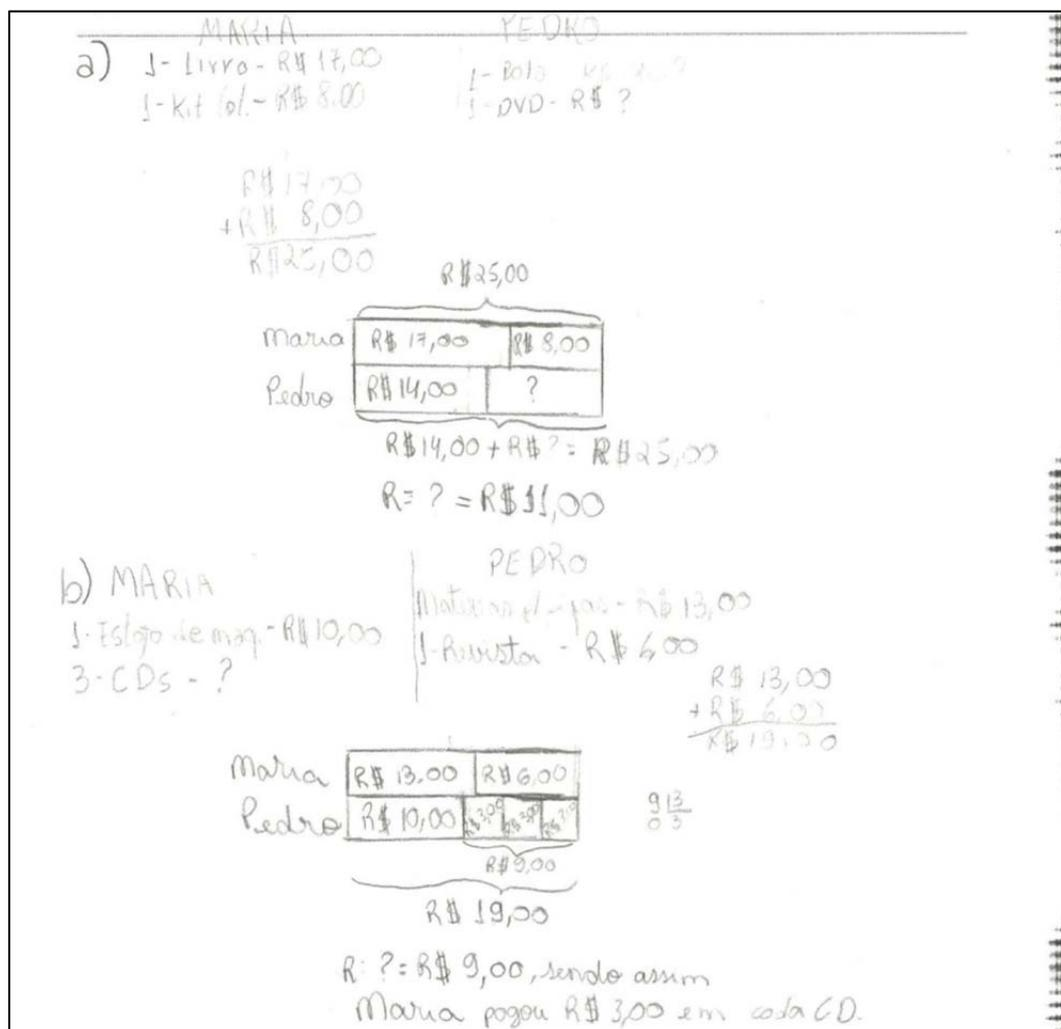 MARIA PEDRO
a) 1- Livro - R$ 17,00 1- Bola
1- Kit col. - R$ 8.00 1- DVD - R$ ?
R$ 17,00
+R$ 8,00
R$ 25,00
R$ 25,00
Maria R$ 17,00 R$ 8,00
Pedro R$ 14,00 ?
R$ 14,00 + R$ ? = R$ 25,00
R= ? = R$ 11,00
b) MARIA
1- Estojo de maq. - R$ 10,00
3- CDs - ?
PEDRO
R$ 13,00
1- Revista - R$ 6,00
R$ 13,00
+R$ 6,00
R$ 19,00
Maria R$ 13.00 R$ 6,00
Pedro R$ 10,00 R$ 3,00 R$ 3,00 R$ 3,00
9 3
0 3
R$ 9,00
R$ 19,00
R: ? = R$ 9,00, sendo assim
Maria pagou R$ 3,00 em cada CD.